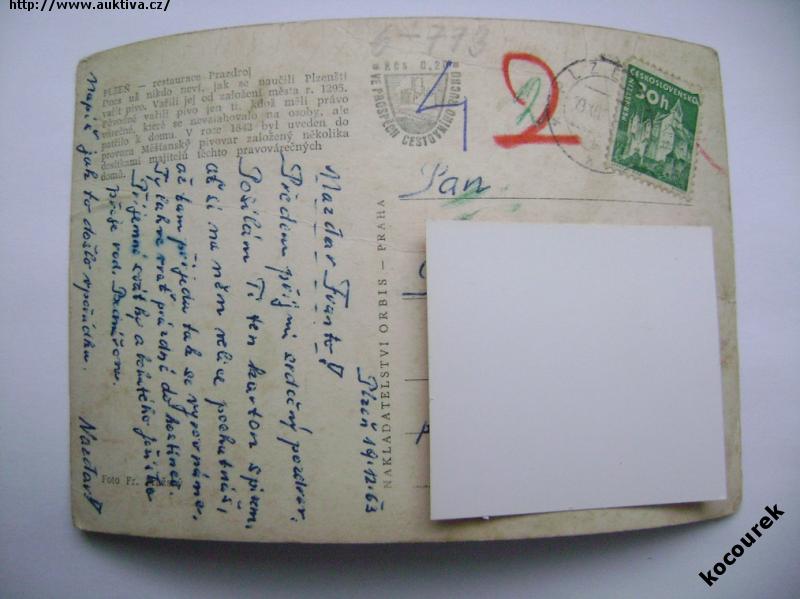 http://www.auktiva.cz/
6-773
PLZEŇ — restaurace Prazdroj
Dnes už nikdo neví, jak se naučili Plzeňští
vařit pivo. Vařili jej od založení města r. 1295.
Původně vařili pivo jen ti, kdož měli právo
várečné, které se nevztahovalo na osoby, ale
patřilo k domu. V roce 1842 byl uveden do
provozu Měšťanský pivovar založený několika
desítkami majitelů těchto pravovárečných
domů.
Kčs 0.20
VE PROSPĚCH CESTOVNÍHO RUCHU
4
2
2
ČESKOSLOVENSKO
PERNŠTEJN
30h
Plzeň 19.12.63
Nazdar Franto!
Předem přijmi srdečný pozdrav.
Posílám Ti ten karton s pivem,
ať si na něm velice pochutnáš,
až tam přijedu tak se vyrovnáme.
Ty lahve vrať prázdné do hostince.
Příjemné svátky a bohatého Ježíška
přeje rod.
Napiš jak to došlo v pořádku. Nazdar!
Foto Fr.
NAKLADATELSTVÍ ORBIS — PRAHA
Pan
kocourek